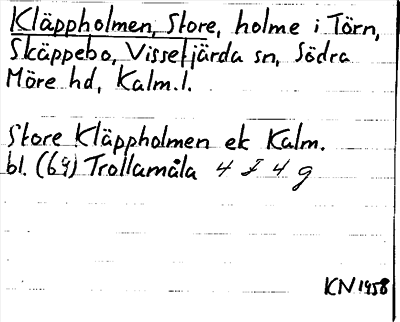 Kläppholmen, Store, holme i Törn,
Skäppebo, Vissefjärda sn, Södra
Möre hd, Kalm.l.
Store Kläppholmen ek Kalm.
bl. (69) Trollamåla 4 J 4 g
KN 1958